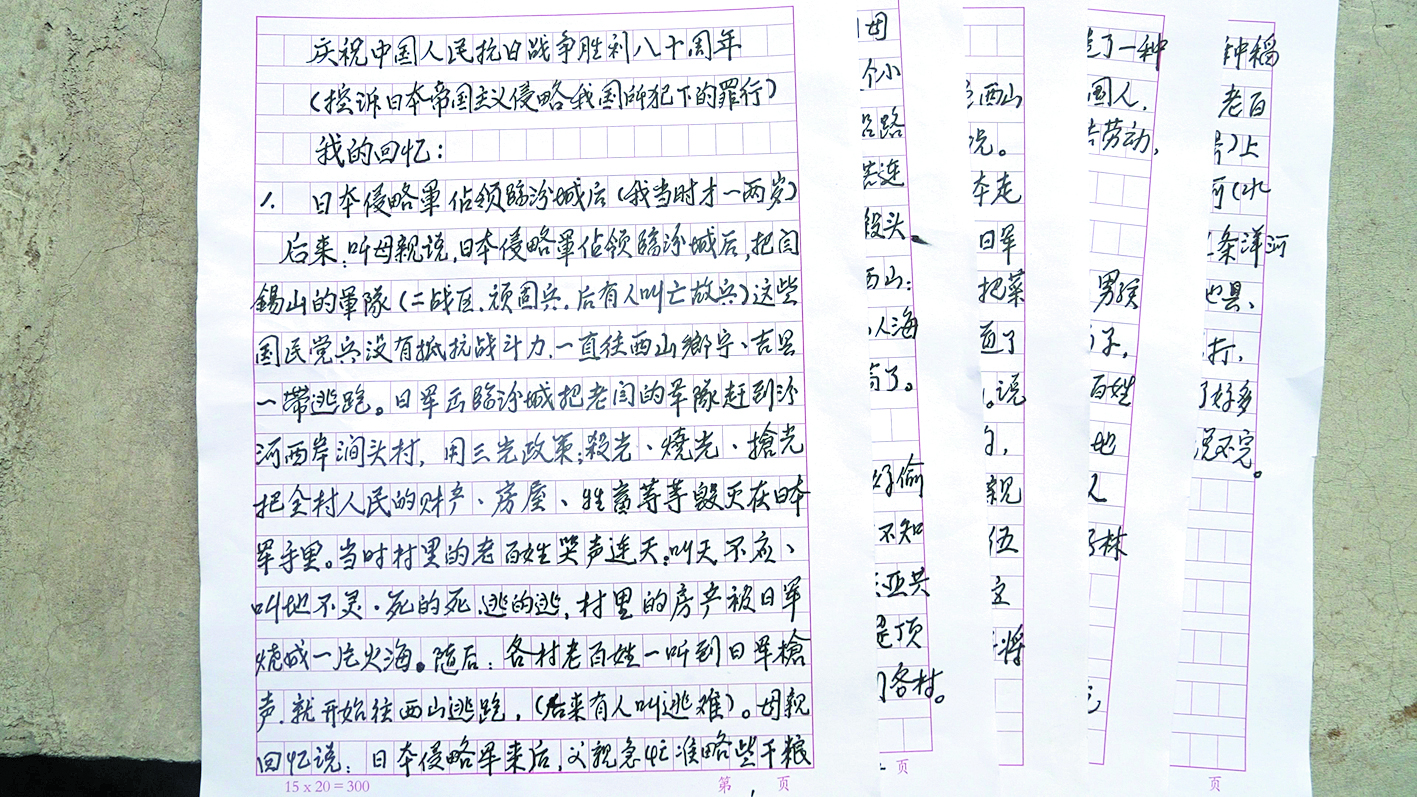 庆祝中国人民抗日战争胜利八十周年
(控诉日本帝国主义侵略我国所犯下的罪行)
我的回忆:
1. 日本侵略军佔领臨汾城后(我当时才一两岁)
后来:听母親说,日本侵略軍佔领臨汾城后,把闫
錫山的軍隊(二战区.顽固兵.后有人叫亡故兵)这些
国民党兵没有抵抗战斗力.一直往西山鄉宁、吉县
一带逃跑。日军在臨汾城把老闫的军隊赶到汾
河西岸涧头村,用三光政策;殺光、燒光、搶光
把全村人民的财产、房屋、牲畜等等毁灭在日本
军手里。当时村里的老百姓哭声连天.叫天不应、
叫地不灵.死的死.逃的逃,村里的房产被日军
烧成一片火海。随后:各村老百姓一听到日军槍
声.就开始往西山逃跑,(后来有人叫逃难)。母親
回忆说:日本侵略军来后,父親急忙准略些干粮
15 x 20 = 300
第 页
母
个小
路
连
段头
西山:
人海
了。
偷
不知
亚共
是顶
各村。
页
西山
说。
本走
日军
把菜
道了
。说
親
伍
主
将
了一种
国人.
劳动,
男孩
子,
百姓
地
人
林
种稻
老百
)上
河(水
条洋河
县、
打,
了好多
说不完。
页